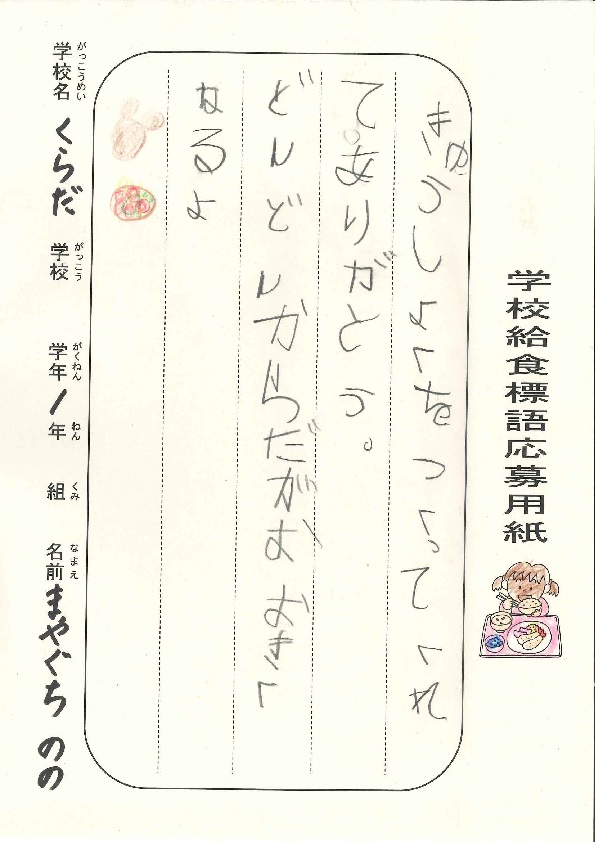 学校給食標語応募用紙
きゅうしょくをつくってくれ
て。ありがとう。
どんどんからだがおおきく
なるよ
学校名 がっこうめい くらだ 学校 がっこう 学年 がくねん 1年 ねん 組 くみ 名前 なまえ まやぐち のの